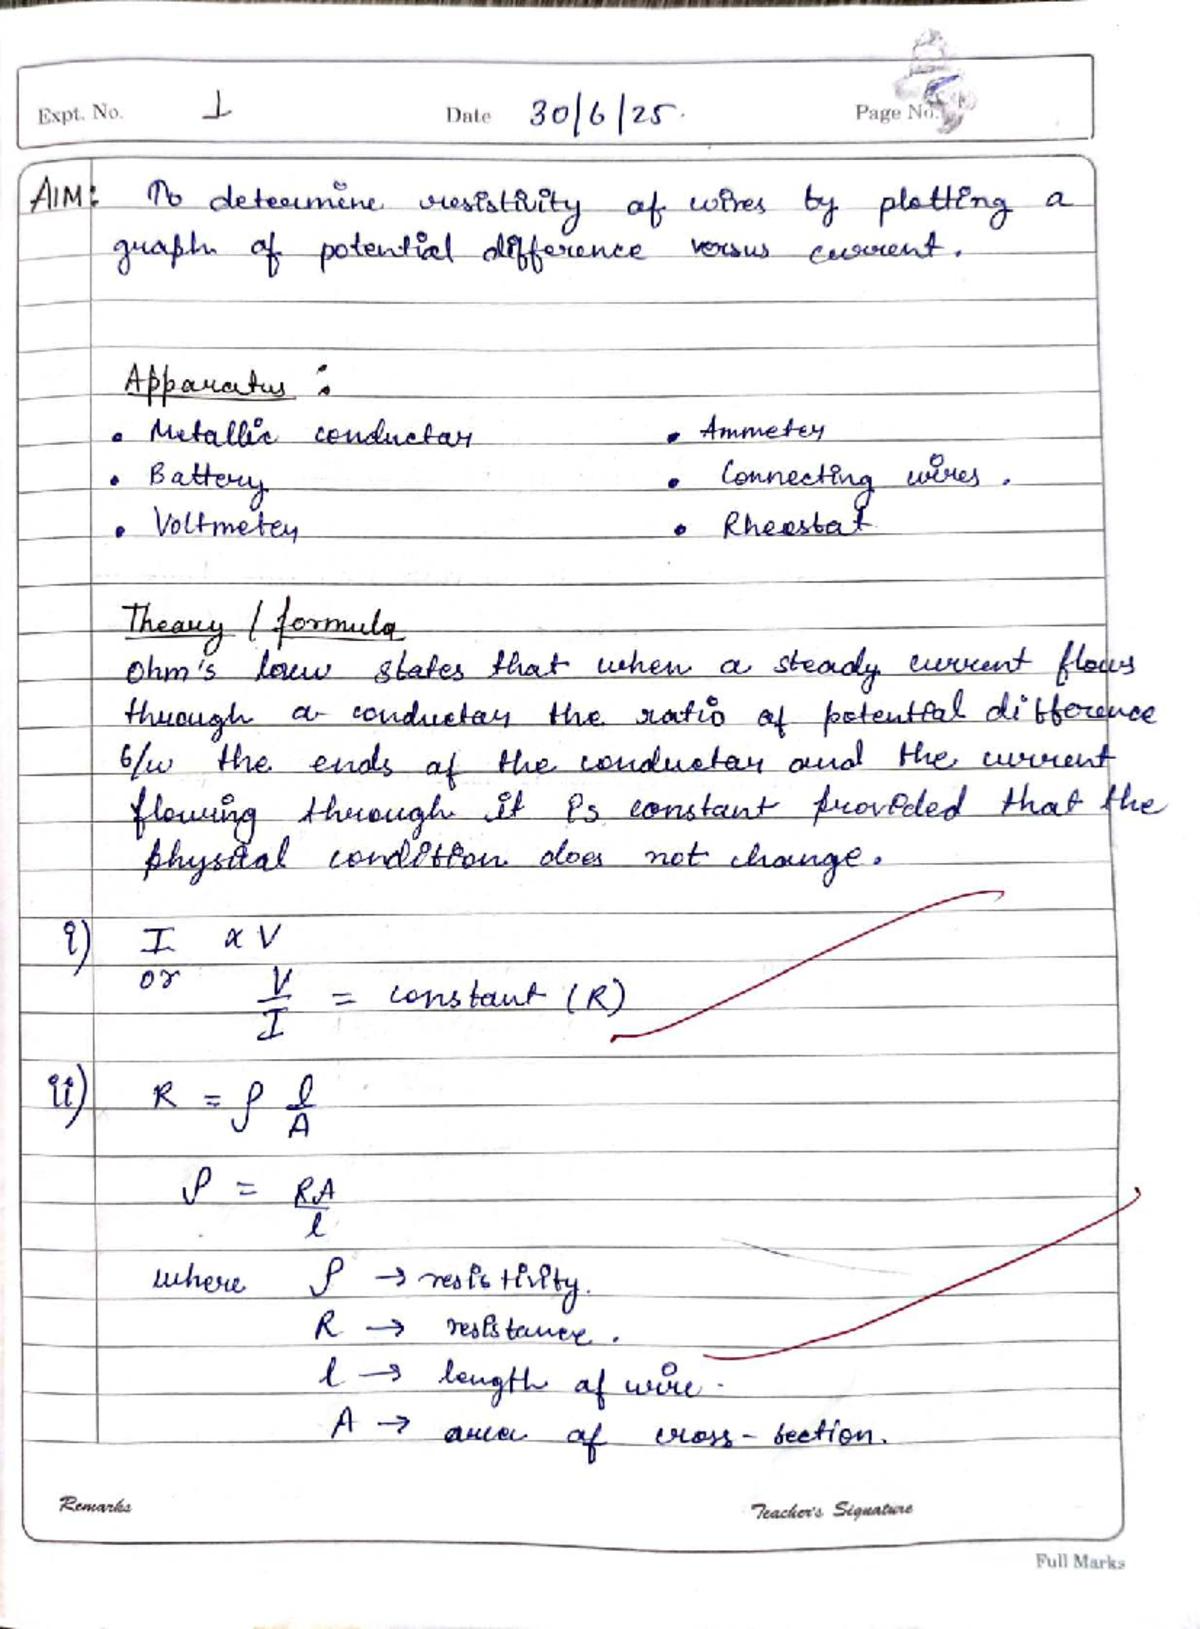 Expt. No. 1 Date 30/6/25. Page No.
AIM: To determine resistivity of wires by plotting a
graph of potential difference versus current.
Apparatus :
• Metallic conductor • Ammeter
• Battery • Connecting wires.
• Voltmeter • Rheostat
Theory / formula
Ohm's law states that when a steady current flows
through a conductor the ratio of potential difference
b/w the ends of the conductor and the current
flowing through it is constant provided that the
physical condition does not change.
i) I ∝ V
or V/I = constant (R)
ii) R = ρ l/A
ρ = RA/l
where ρ → resistivity.
R → resistance.
l → length of wire.
A → area of cross-section.
Remarks Teacher's Signature
Full Marks